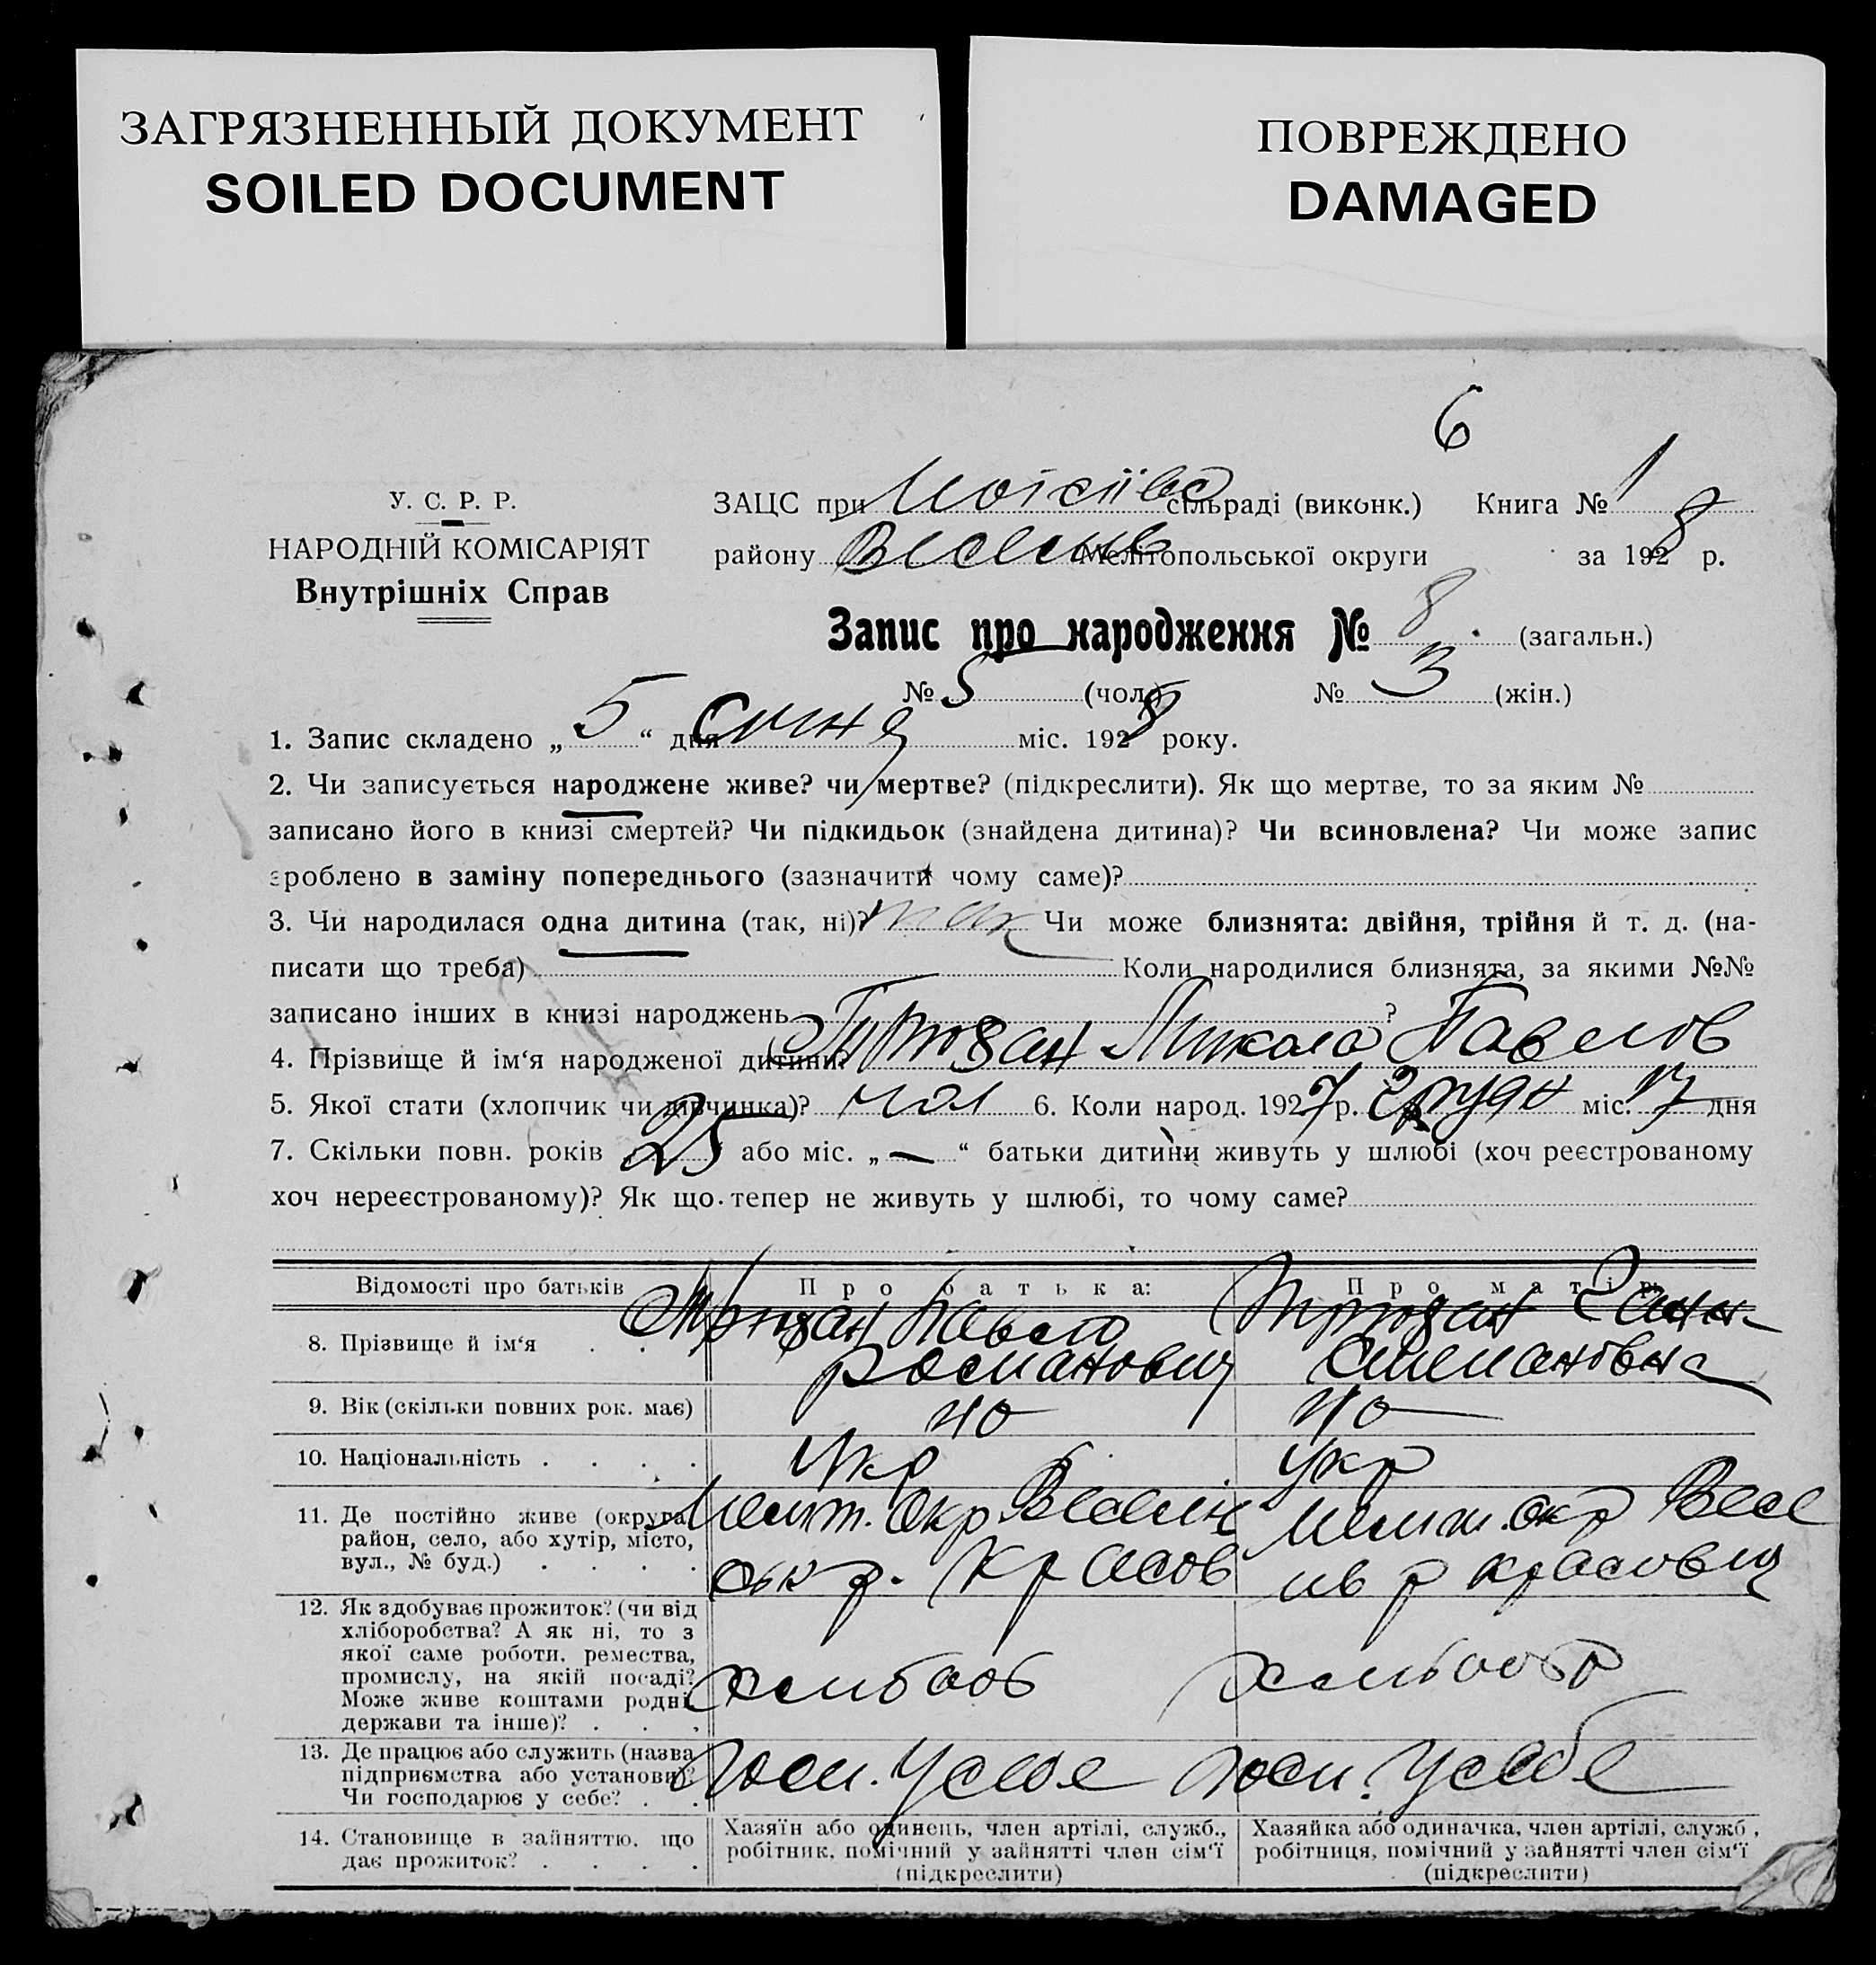 ЗАГРЯЗНЕННЫЙ ДОКУМЕНТ
SOILED DOCUMENT
ПОВРЕЖДЕНО
DAMAGED
6
У. С. Р. Р.
НАРОДНІЙ КОМІСАРІЯТ
Внутрішніх Справ
ЗАЦС при сільраді (виконк.) Книга № 1
району Весел Мелітопольської округи за 1928 р.
Запис про народження № 8. (загальн.)
№ 5 (чол.) № 3 (жін.)
1. Запис складено „ 5 “ дня Січня міс. 1928 року.
2. Чи записується народжене живе? чи мертве? (підкреслити). Як що мертве, то за яким №
записано його в книзі смертей? Чи підкидьок (знайдена дитина)? Чи всиновлена? Чи може запис
зроблено в заміну попереднього (зазначити чому саме)?
3. Чи народилася одна дитина (так, ні)? так Чи може близнята: двійня, трійня й т. д. (на-
писати що треба) Коли народилися близнята, за якими №№
записано інших в книзі народжень ?
4. Прізвище й ім‘я народженої дитини? Микола Павлов
5. Якої стати (хлопчик чи дівчинка)? чол 6. Коли народ. 1927 р. Грудн міс. 17 дня
7. Скільки повн. років 25 або міс. „ — “ батьки дитини живуть у шлюбі (хоч реєстрованому
хоч нереєстрованому)? Як що тепер не живуть у шлюбі, то чому саме?
Відомості про батьків Про батька: Про матір:
8. Прізвище й ім‘я . . Павло Ганн
Романович Степановна
9. Вік (скільки повних рок. має) 40 40
10. Національність . . . . Укр Укр
11. Де постійно живе (округа, Меліт. Окр Меліт. окр Весе
район, село, або хутір, місто,
вул., № буд.) . . . .
12. Як здобуває прожиток? (чи від
хліборобства? А як ні, то з
якої саме роботи, ремества,
промислу, на якій посаді?
Може живе коштами родні,
держави та інше)? . . .
13. Де працює або служить (назва
підприємства або установи)?
Чи господарює у себе? . .
14. Становище в зайняттю, що Хазяїн або одинець, член артілі, служб., Хазяйка або одиначка, член артілі, служб.,
дає прожиток? . . . . робітник, помічний у зайнятті член сім‘ї робітниця, помічний у зайнятті член сім‘ї
(підкреслити) (підкреслити)